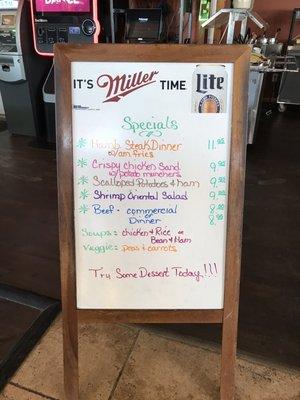 DANCE
IT'S Miller TIME Lite
Specials
* Hamb Steak Dinner 11.95
w/am. fries
* Crispy Chicken Sand 9.95
w/potato munchers
* Scalloped Potatoes & Ham 9.95
* Shrimp Oriental Salad 9.95
* Beef - commercial 8.00
or
Dinner 8.95
Soups: chicken & Rice or
Bean & Ham
Veggie: peas & carrots
Try Some Dessert Today!!!